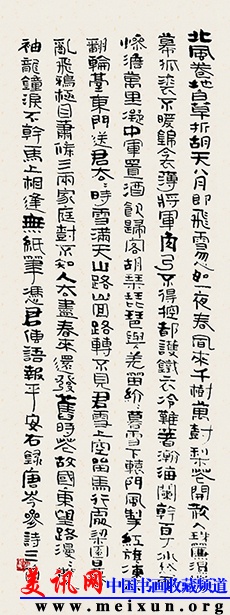 北風卷地白草折胡天八月即飛雪忽如一夜春風來千樹萬樹梨花開散入珠簾濕羅
幕狐裘不暖錦衾薄將軍角弓不得控都護鐵衣冷難著瀚海闌幹百丈冰愁雲
慘澹萬里凝中軍置酒飲歸客胡琴琵琶與羌笛紛紛暮雪下轅門風掣紅旗凍不
翻輪臺東門送君去去時雪滿天山路山迴路轉不見君雪上空留馬行處梁園日暮
亂飛鴉極目蕭條三兩家庭樹不知人去盡春來還發舊時花故國東望路漫漫雙
袖龍鐘淚不幹馬上相逢無紙筆憑君傳語報平安右錄唐岑參詩三
美讯网
中国书画收藏频道
www.meixun.org